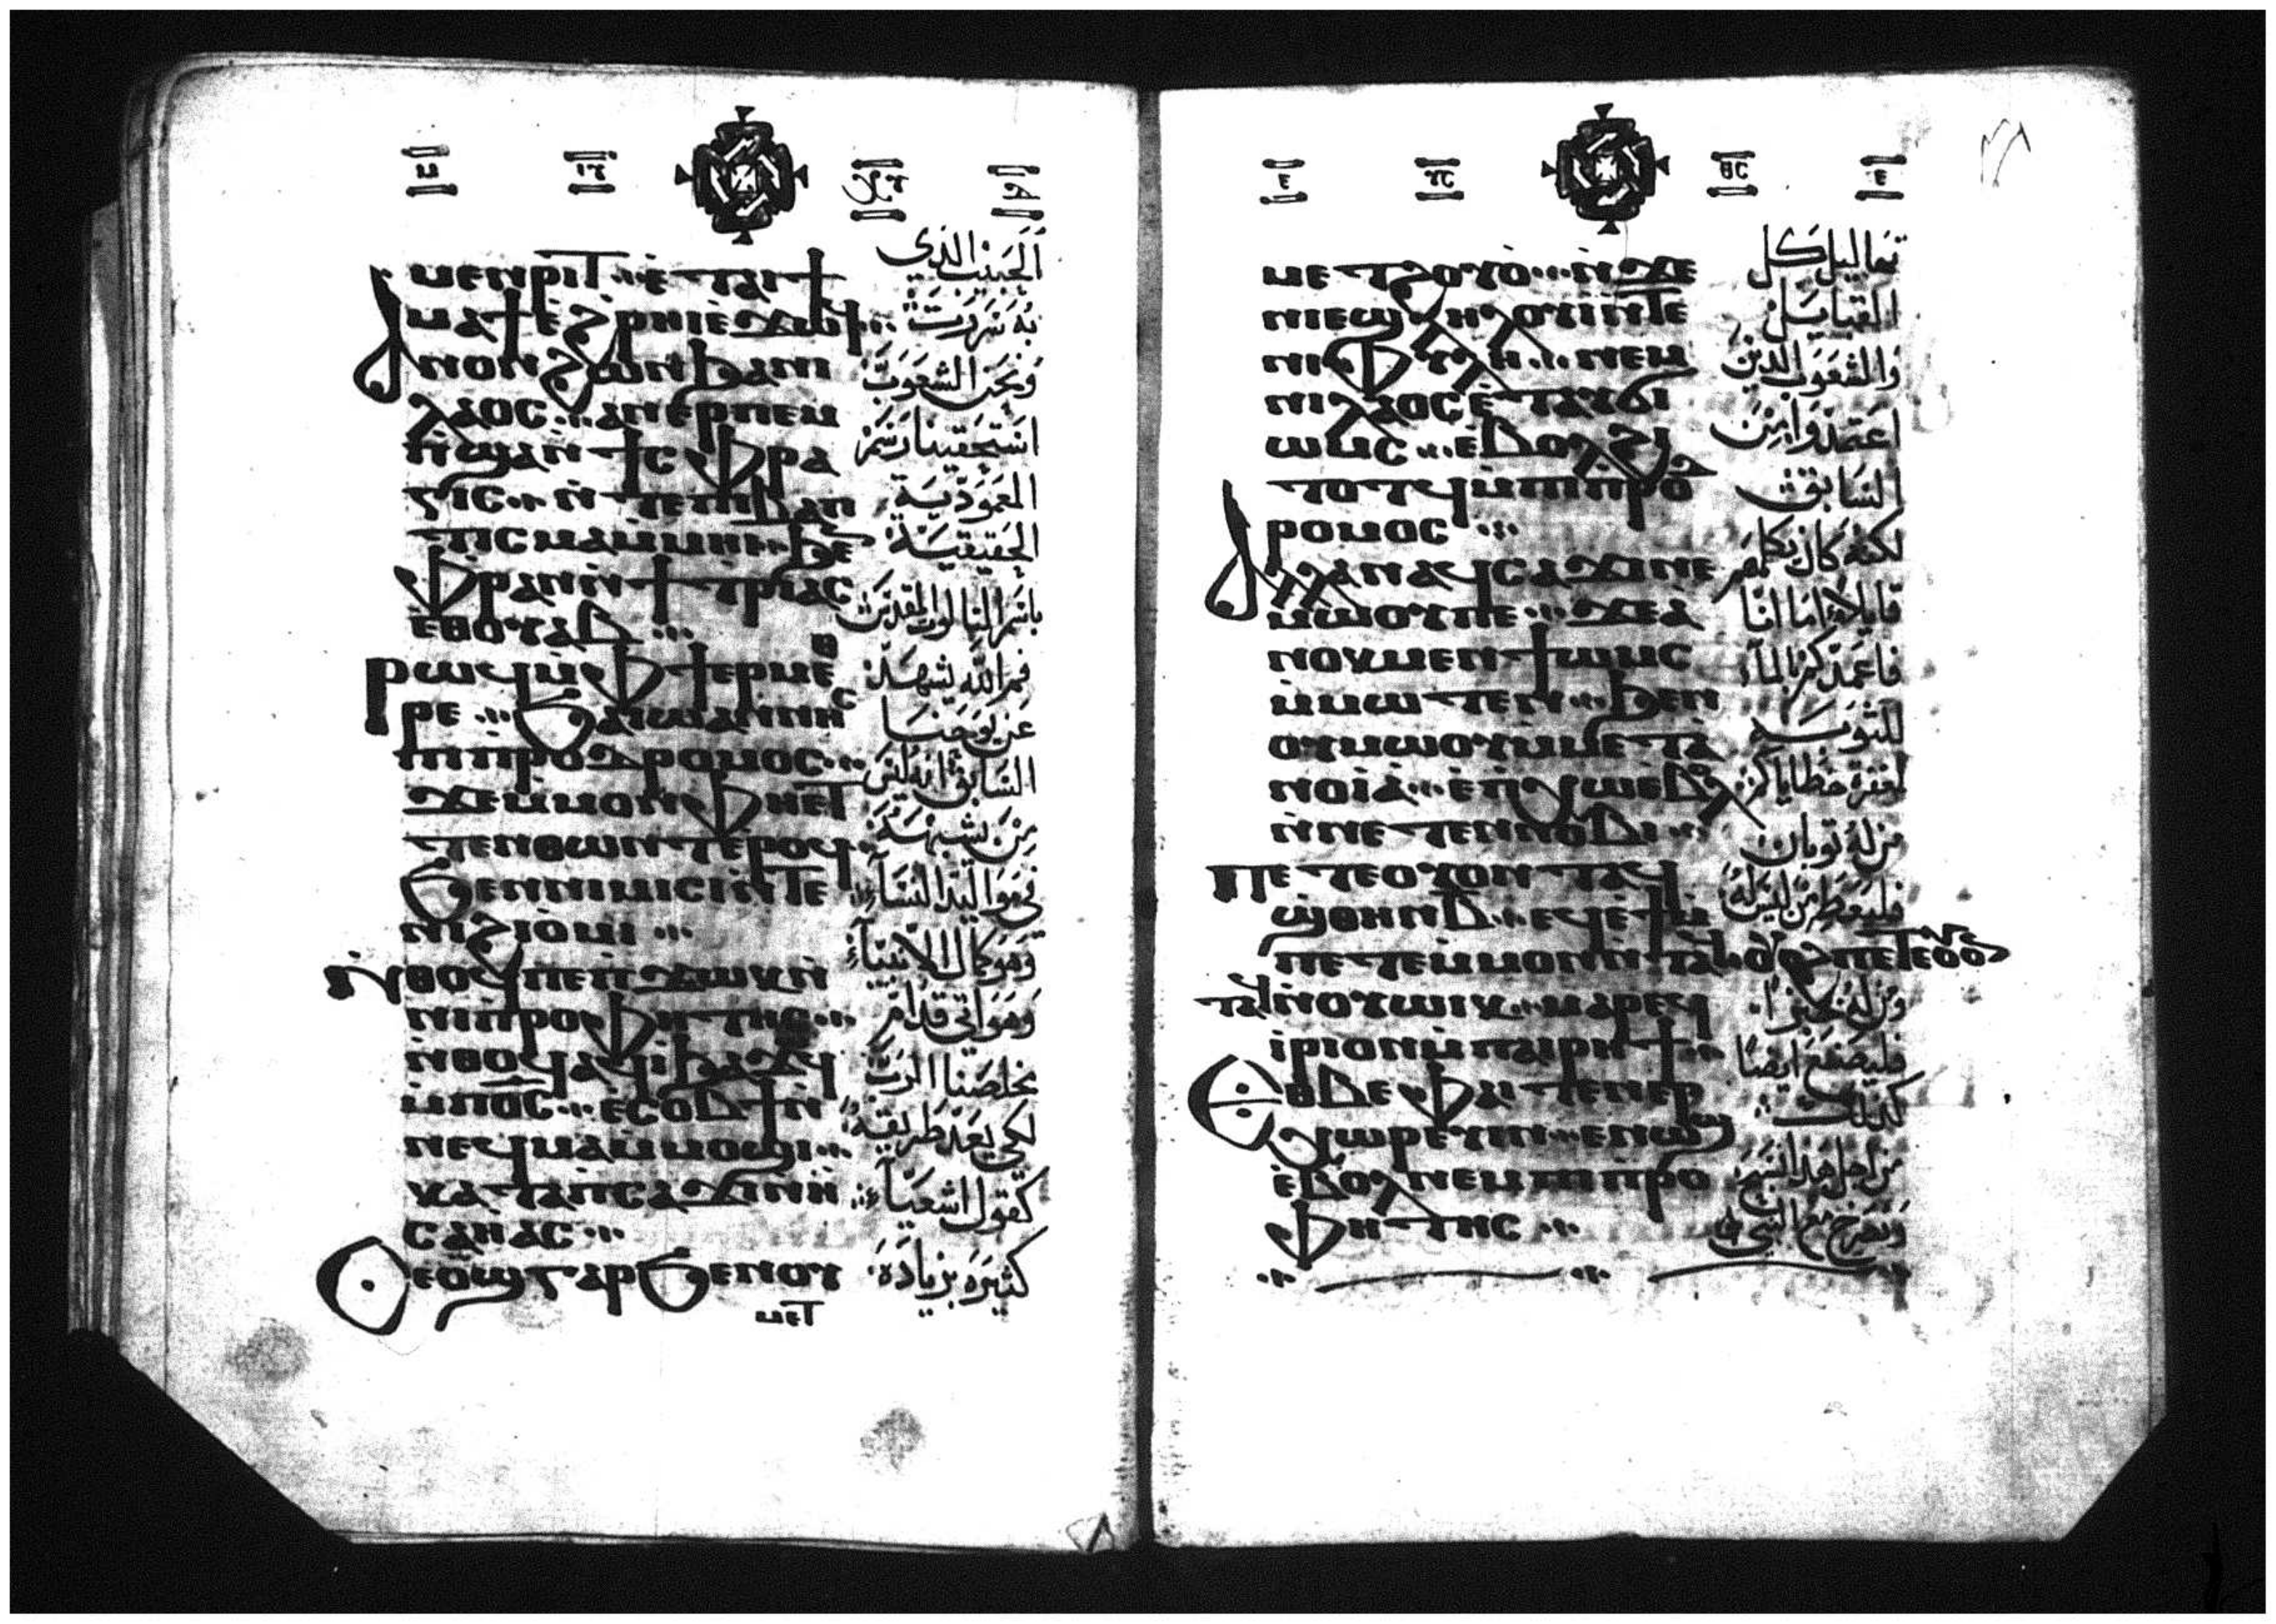 ⲙⲉⲛⲣⲓⲧ ⲉⲧⲁⲓϯ
ⲙⲁϯ ⲉϩⲣⲏⲓ ⲉϫⲱϥ
ⲁⲛⲟⲛ ϩⲱⲛ ϧⲁⲛⲓ
ⲗⲁⲟⲥ ⲁⲛⲉⲣⲡⲉⲙ
ⲡϣⲁ ⲛϯⲥⲫⲣⲁ
ⲅⲓⲥ ⲛⲧⲉ ⲡⲓⲃⲁⲡ
ⲧⲓⲥⲙⲁ ⲙⲙⲏⲓ ϧⲉⲛ
ⲫⲣⲁⲛ ⲛϯⲧⲣⲓⲁⲥ
ⲉⲑⲟⲩⲁⲃ
ⲣⲱϥ ⲙⲫϯ ⲉⲣⲙⲉⲑ
ⲣⲉ ϭⲁ ⲓⲱⲁⲛⲛⲏⲥ
ⲡⲓⲡⲣⲟⲇⲣⲟⲙⲟⲥ
ϫⲉ ⲙⲙⲟⲛ ⲫⲏⲉⲧ
ⲧⲉⲛⲑⲱⲛⲧ ⲉⲣⲟϥ
ϧⲉⲛ ⲛⲓⲙⲓⲥⲓ ⲛⲧⲉ
ⲛⲓϩⲓⲟⲙⲓ
ⲛⲑⲟϥ ⲡⲉ ⲡϫⲱⲕ ⲛ
ⲛⲓⲡⲣⲟⲫⲏⲧⲏⲥ
ⲛⲑⲟϥ ⲁϥⲓ ϧⲁϫⲱϥ
ⲙⲡⲟⲥ ⲉⲥⲟⲃϯ ⲛ
ⲛⲉϥⲙⲁⲙⲙⲟϣⲓ
ⲕⲁⲧⲁ ⲡⲥⲁϫⲓ ⲛⲏ
ⲥⲁⲏⲁⲥ
ⲑⲉⲟϣ ⲅⲁⲣ ϧⲉⲛⲟⲩ
ⲙⲉⲧ
الحبيب الذي
به سررت
ونحن الشعوب
استحقينا رشم
المعمودية
الحقيقية
باسم الثالوث المقدس
فم الله يشهد
عن يوحنا
السابق انه ليس
من يشبهه
في مواليد النساء
وهو كمال الانبياء
وهو اتى قدام
مخلصنا الرب
لكي يعد طريقه
كقول اشعياء
كثيره بزياده
ⲡⲉⲧϩⲟⲩⲟ ⲛϫⲉ
ⲛⲓⲉϣⲗⲏⲗⲟⲩⲓ ⲛⲧⲉ
ⲛⲓⲫⲩⲗⲏ ⲛⲉⲙ
ⲛⲓⲗⲁⲟⲥ ⲉⲧⲁⲩϭⲓ
ⲱⲙⲥ ⲉⲃⲟⲗ ϩⲓ
ⲧⲟⲧϥ ⲙⲡⲓⲡⲣⲟⲇ
ⲣⲟⲙⲟⲥ
ⲁⲗⲗⲁ ⲛⲁϥⲥⲁϫⲓ ⲛⲉ
ⲙⲱⲟⲩ ⲡⲉ ϫⲉ ⲁ
ⲛⲟⲕ ⲙⲉⲛ ϯⲱⲙⲥ
ⲙⲙⲱⲧⲉⲛ ϧⲉⲛ
ⲟⲩⲙⲱⲟⲩ ⲙⲙⲉⲧⲁ
ⲛⲟⲓⲁ ⲉⲡⲭⲱ ⲉⲃⲟⲗ
ⲛⲛⲉⲧⲉⲛⲛⲟⲃⲓ
ⲡⲉⲧⲉ ⲟⲩⲟⲛ ⲛⲧⲁϥ
ϣⲑⲏⲛ ⲃ ⲉϥⲉϯ ⲙ
ⲡⲉⲧⲉ ⲙⲙⲟⲛ ⲛⲧⲁϥ ⲟⲩⲟϩ ⲡⲉⲧⲉ ⲟⲩⲟⲛ
ⲛⲧⲁϥ ⲛⲟⲩⲱⲓⲕ ⲙⲁⲣⲉϥ
ⲓⲣⲓ ⲟⲛ ⲙⲡⲁⲓⲣⲏϯ
ⲉⲑⲃⲉ ⲫⲁⲓ ⲧⲉⲛⲉⲣ
ϣⲱⲣⲉⲩⲓⲛ ⲉⲛⲱϣ
ⲉⲃⲟⲗ ⲛⲉⲙ ⲡⲓⲡⲣⲟ
ⲫⲏⲧⲏⲥ
تعاليل كل
القبايل
والشعوب الذين
اعتمدوا من
السابق
لكنه كان يكلمهم
قايلا اما انا
فاعمدكم بالماء
للتوبه
لمغفرة خطاياكم
من له ثوبان
فليعط من ليس له
ومن له خبزا
فليصنع ايضا
كذلك
من اجل هذا
ونصرخ مع النبي